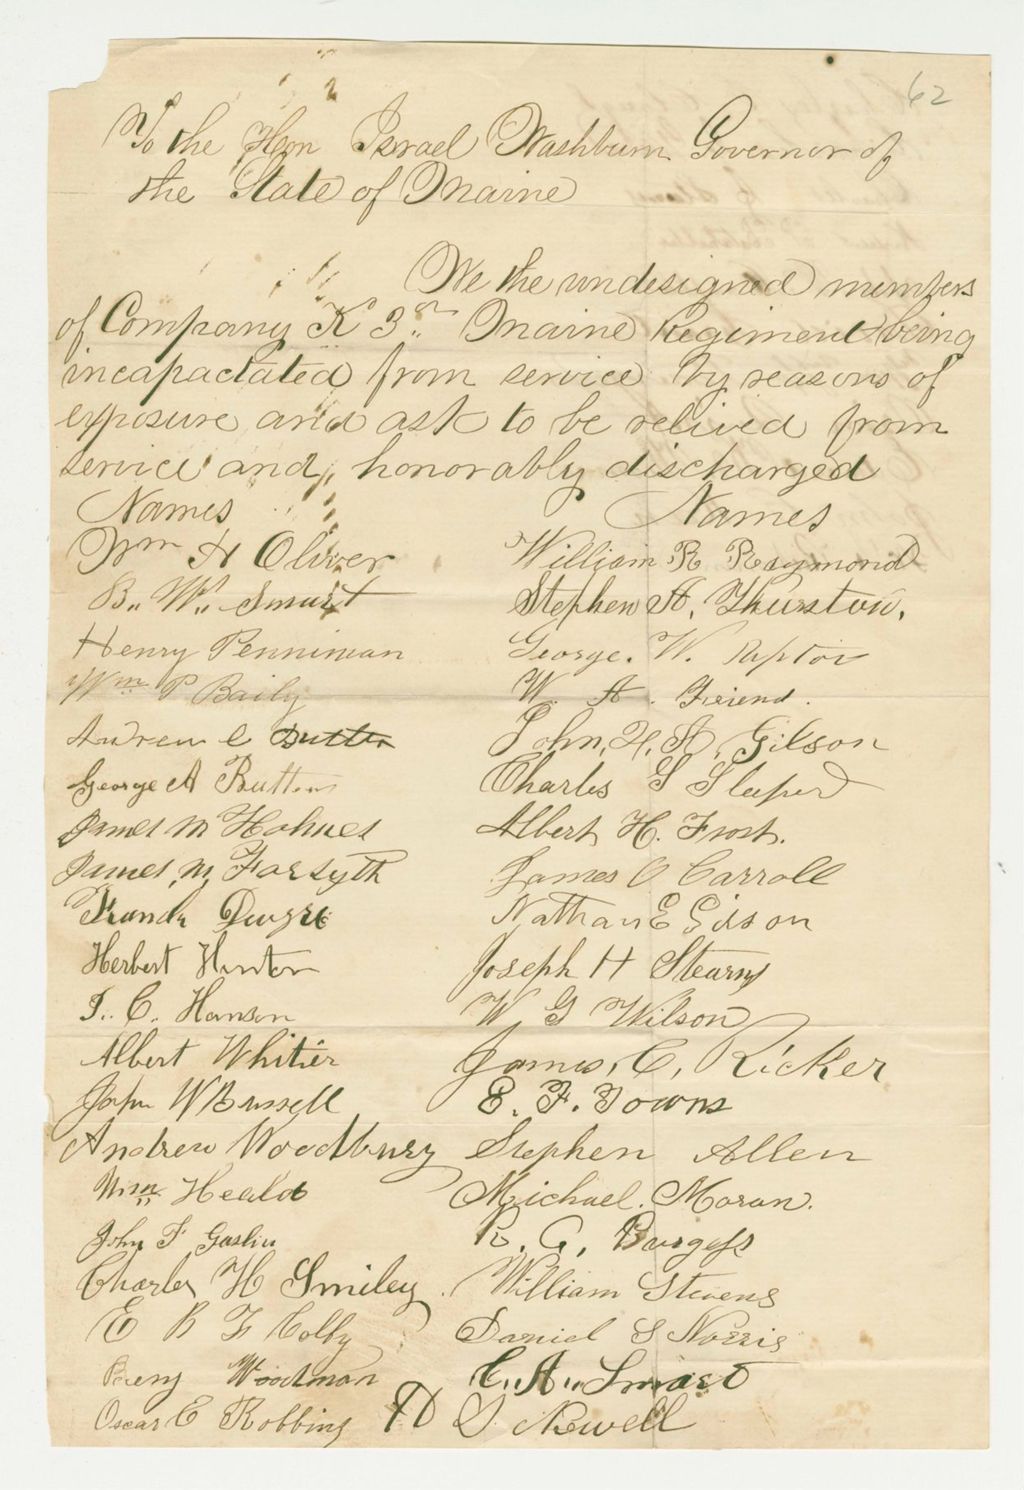 62
To the Hon Israel Washburn Governor of
the State of Maine
We the undesigned members
of Company K 3rd Maine Regiment being
incapactated from service by reasons of
exposure and ask to be relived from
service and, honorably discharged
Names
Wm H Oliver
B. W. Smart
Henry Penniman
Wm P Baily
Andrew C Butler
George A Butters
James M Holmes
James M Forsyth
Frank
Herbert Hinton
I. C. Hanson
Albert Whitier
John W Bussell
Andrew Woodbury
Wm Heald
John F Gaslin
Charles H Smiley
E B F Colby
Woodman
Oscar E Robbins
Names
William R Raymond
Stephen A. Thurston.
George. W.
W. A. Friend.
John, H, A, Gilson
Charles S Sleeper
Albert H. Frost.
James O Carroll
Nathan E Gilson
Joseph H Stearns
W G Wilson
James, C, Ricker
E. F. Towns
Stephen Allen
Michael. Moran.
R. G. Burgess
William Stevens
Daniel S Norris
C. A. Smart
H D S Newell